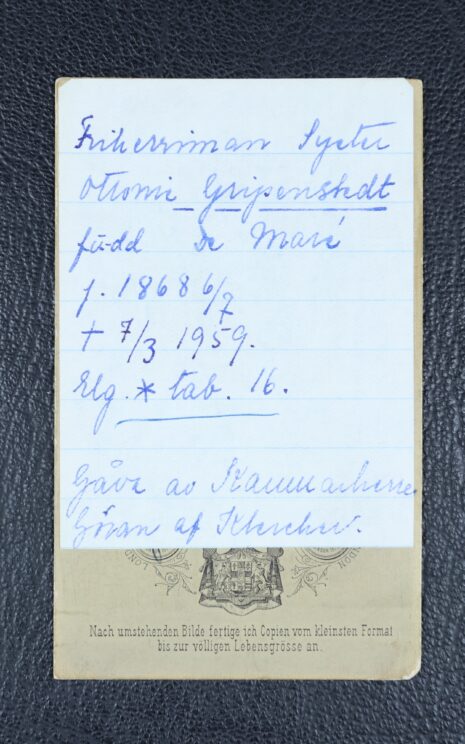 Friherrinnan
Gripenstedt
född De Maré
f. 1868 6/7
+ 7/3 1959.
Elg. * tab. 16.
Gåva av Kammarherre
Göran af Klercker.
LOND
NDON
Nach umstehenden Bilde fertige ich Copien vom kleinsten Format
bis zur völligen Lebensgrösse an.